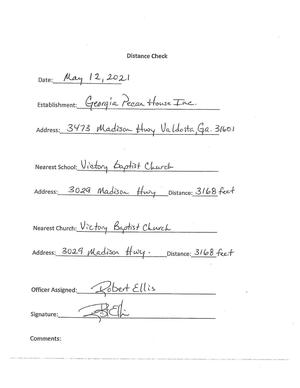 Distance Check
Date: May 12, 2021
Establishment: Georgia Pecan House Inc.
Address: 3473 Madison Hwy Valdosta, Ga. 31601
Nearest School: Victory Baptist Church
Address: 3029 Madison Hwy Distance: 3168 feet
Nearest Church: Victory Baptist Church
Address: 3029 Madison Hwy. Distance: 3168 feet
Officer Assigned: Robert Ellis
Signature: R Ellis
Comments: